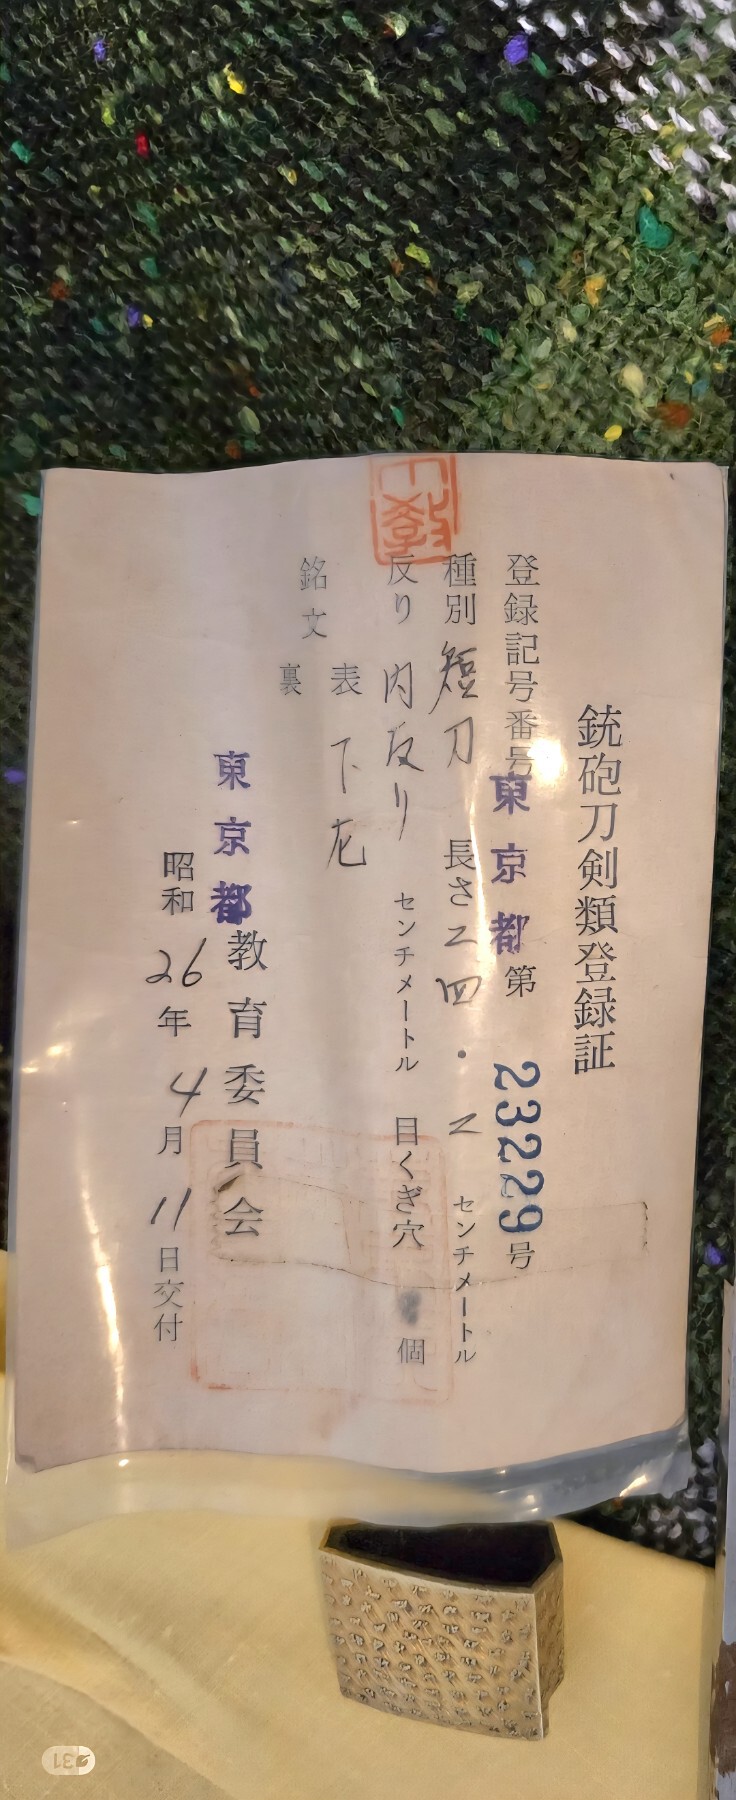 銃砲刀剣類登録証
登録記号番号東京都第23229号
種別 短刀 長さ二四・二センチメートル
反り 内反り センチメートル 目くぎ穴 個
銘文 表
裏
東京都教育委員会
昭和26年4月11日交付